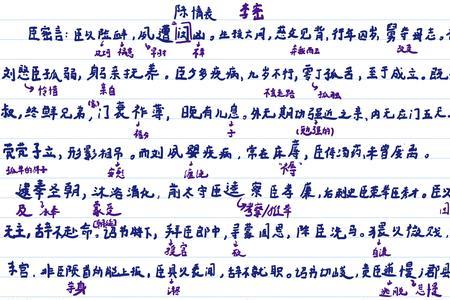 陈情表 李密
臣密言：臣以险衅，夙遭闵凶。生孩六月，慈父见背，行年四岁，舅夺母志。
刘愍臣孤弱，躬亲抚养。臣少多疾病，九岁不行，零丁孤苦，至于成立。既
怜惜 亲自 孤独
叔，终鲜兄弟，门衰祚薄，晚有儿息。外无期功强近之亲，内无应门五尺
福分 子 (勉强的)
茕茕孑立，形影相吊。而刘夙婴疾病，常在床蓐，臣侍汤药，未曾废离。
安慰
逮奉圣朝，沐浴清化。前太守臣逵察臣孝廉，后刺史臣荣举臣秀才。臣以
及 蒙受
无主，辞不赴命。诏书特下，拜臣郎中，寻蒙国恩，除臣洗马。猥以微贱，
授官
东宫，非臣陨首所能上报。臣具以表闻，辞不就职。诏书切峻，责臣逋慢；郡县
怠慢